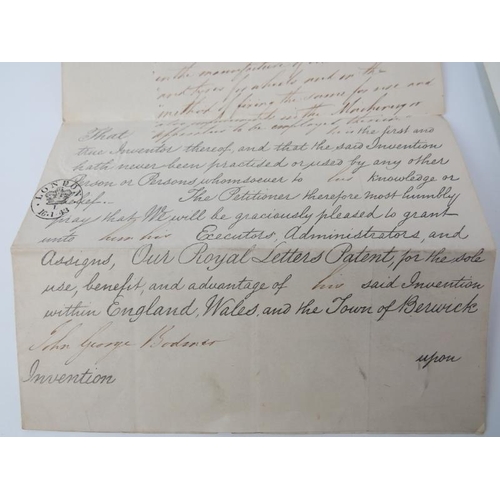 in the manufacture of
and tyres for wheels and in the
method of fixing the same for use and
in the Machinery or
apparatus to be employed therein
That he is the first and
true Inventor thereof, and that the said Invention
hath never been practised or used by any other
Person or Persons, whomsoever to his knowledge or
belief.
The Petitioner therefore most humbly
pray that We will be graciously pleased to grant
unto him his Executors, Administrators, and
Assigns, Our Royal Letters Patent, for the sole
use, benefit, and advantage of his said Invention
within England, Wales, and the Town of Berwick
John George Bodmer
upon
Invention
LONDON